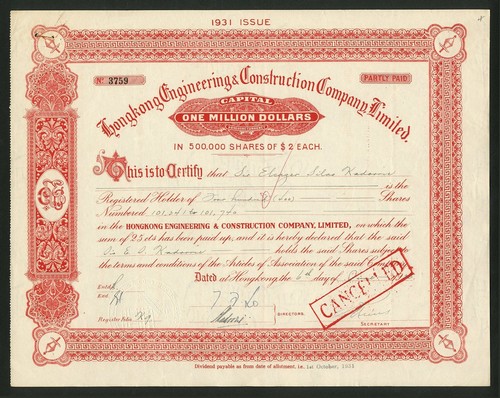 1931 ISSUE
No 3759
PARTLY PAID
Hongkong Engineering & Construction Company, Limited.
CAPITAL
ONE MILLION DOLLARS
IN 500,000 SHARES OF $2 EACH.
This is to Certify that Sir Eleazer Silas Kadoorie
is the
Registered Holder of Five hundred (500) Shares
Numbered 101,241 to 101,740
in the HONGKONG ENGINEERING & CONSTRUCTION COMPANY, LIMITED, on which the
sum of 25 cts has been paid up, and it is hereby declared that the said
Sir E. S. Kadoorie holds the said Shares subject to
the terms and conditions of the Articles of Association of the said Company
Dated at Hongkong, the 6th day of
CANCELLED
Entd.
Exd.
DIRECTORS.
Register Folio
SECRETARY
Dividend payable as from date of allotment. i.e. 1st October, 1931